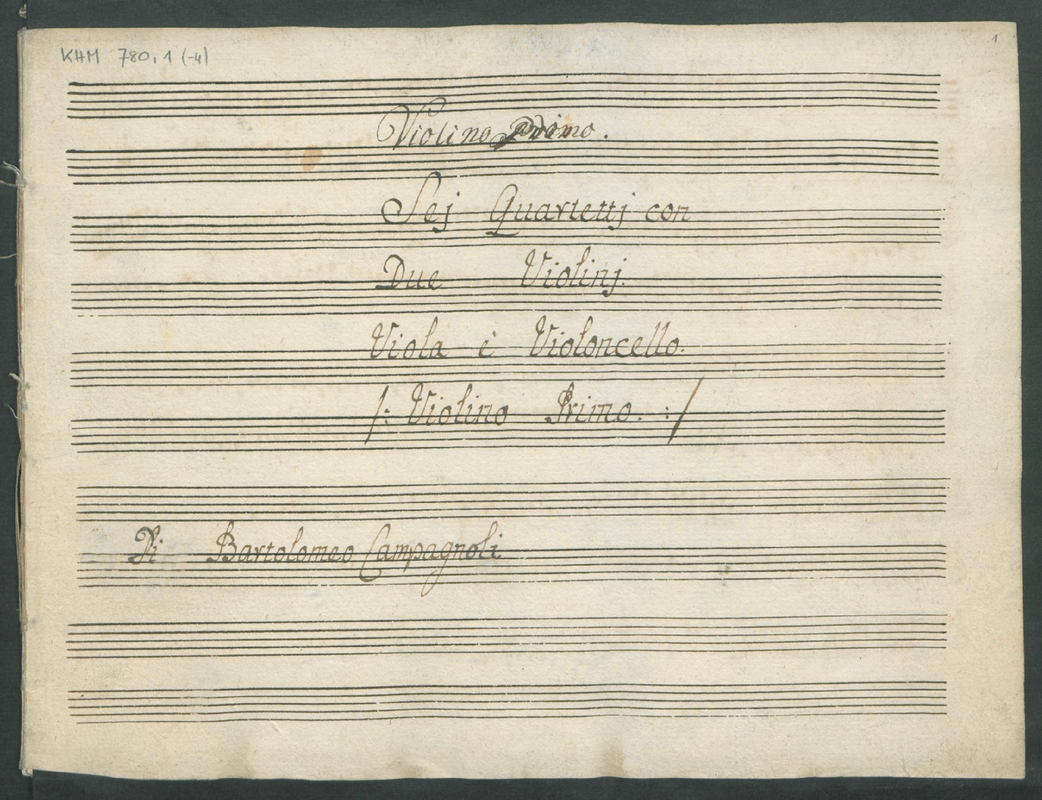 KHM 780.1 (-4)
1
Violino Primo.
Sej Quartettj con
Due Violinj.
Viola è Violoncello.
/: Violino Primo. :/
Di Bartolomeo Campagnoli